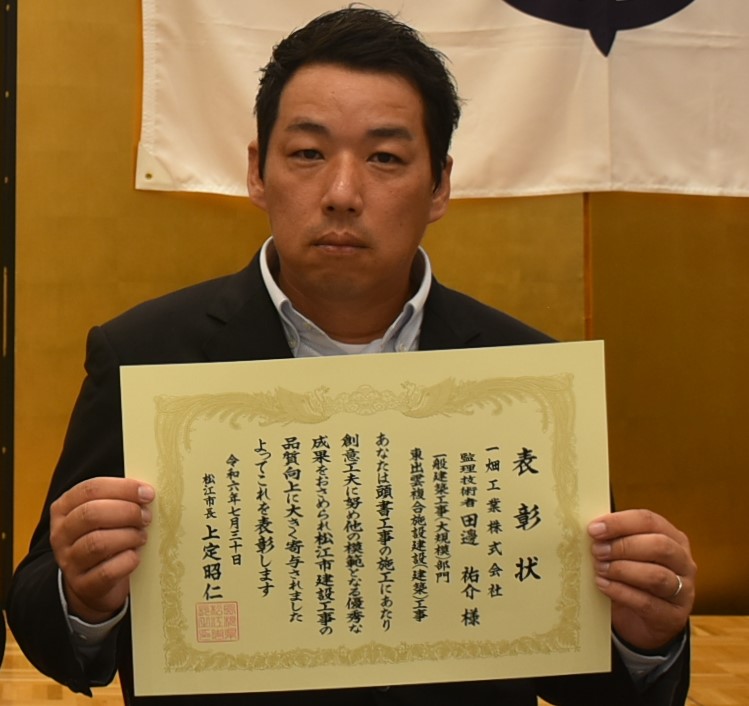 表彰状
一畑工業株式会社
監理技術者 田邊 祐介 様
一般建築工事（大規模）部門
東出雲複合施設建設（建築）工事
あなたは頭書工事の施工にあたり
創意工夫に努め他の模範となる優秀な
成果をおさめられ松江市建設工事の
品質向上に大きく寄与されました
よってこれを表彰します
令和六年七月三十日
松江市長 上定昭仁